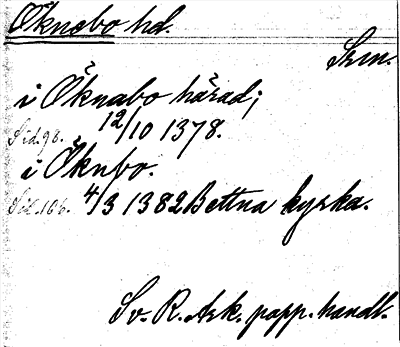 Öknebo hd.
Srm.
i Öknabo härad;
Sid. 98. 12/10 1378.
i Öknbo.
Sid. 106. 4/3 1382 Bettna kyrka.
Sv. R. Ark. papp. handl.